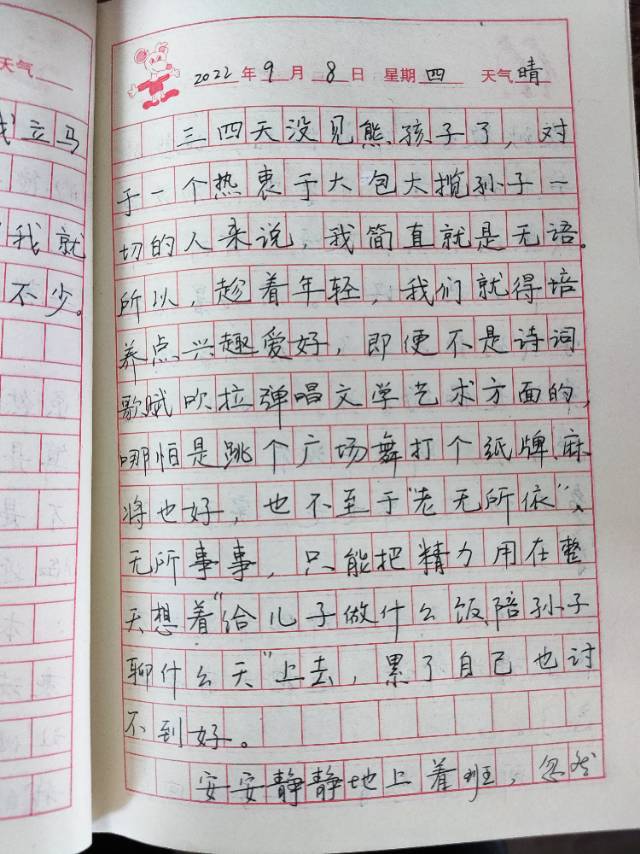 天气
立马
我就
不少。
2022年9月8日 星期四 天气晴
三四天没见熊孩子了，对
于一个热衷于大包大揽孙子一
切的人来说，我简直就是无语。
所以，趁着年轻，我们就得培
养点兴趣爱好，即便不是诗词
歌赋吹拉弹唱文学艺术方面的，
哪怕是跳个广场舞打个纸牌麻
将也好，也不至于“老无所依”、
无所事事，只能把精力用在整
天想着“给儿子做什么饭陪孙子
聊什么天”上去，累了自己也讨
不到好。
安安静静地上着班，忽然